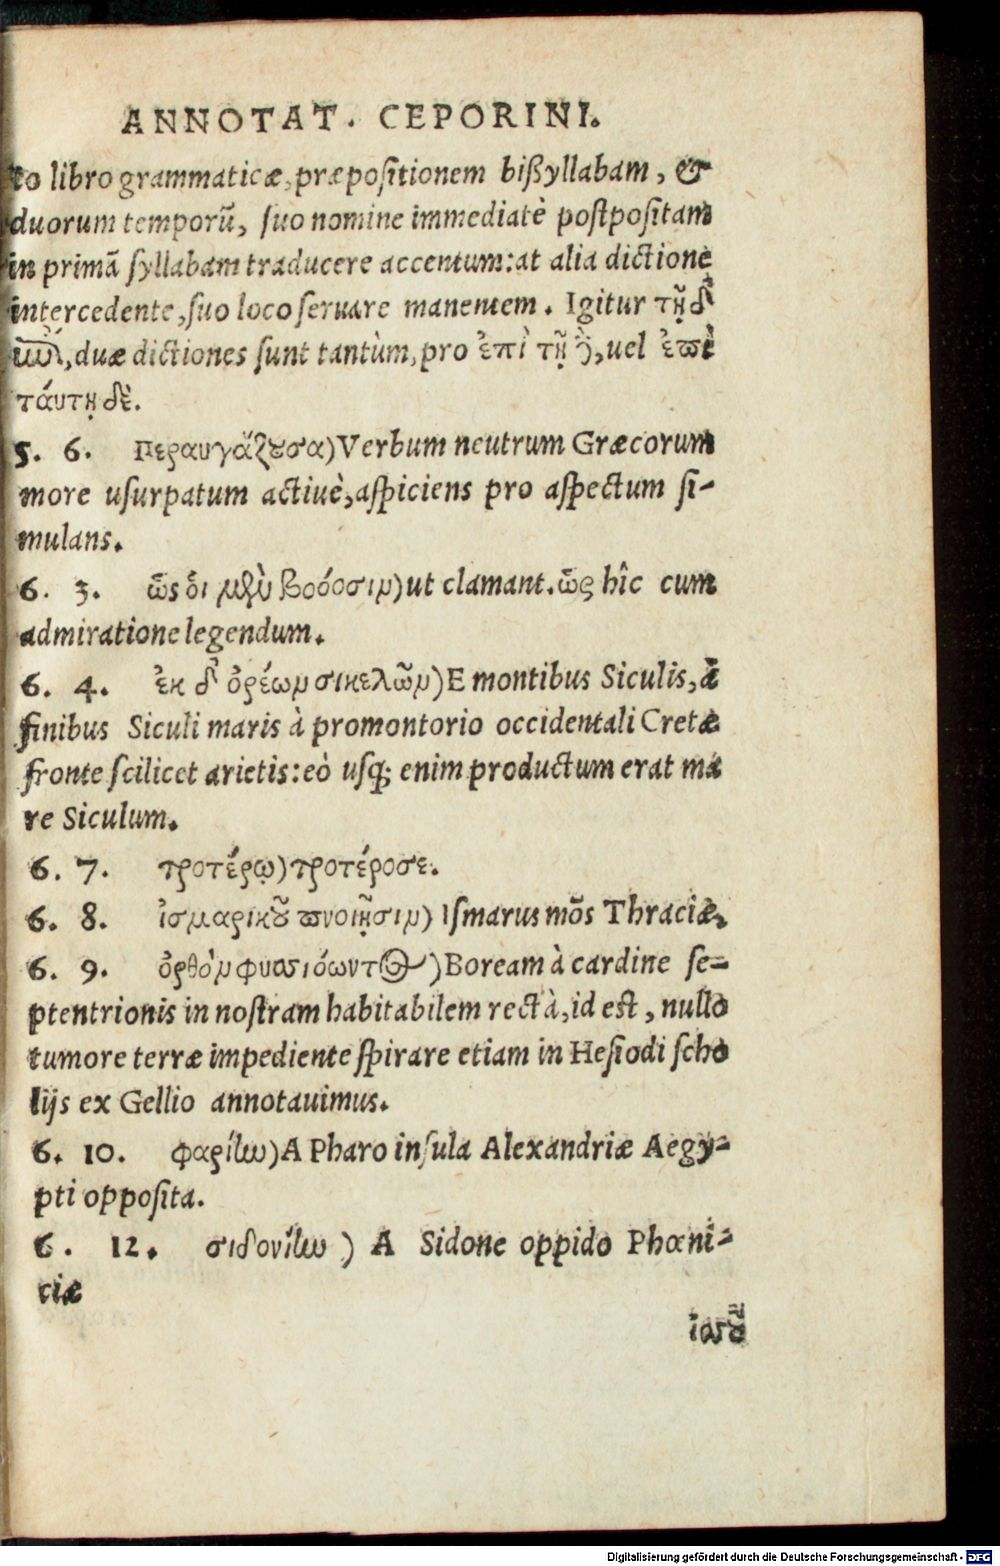 ANNOTAT. CEPORINI.
to libro grammaticæ, præpositionem bißyllabam, &
duorum temporū, suo nomine immediatè postpositam
in primā syllabam traducere accentum: at alia dictione
intercedente, suo loco seruare manentem. Igitur τῇ δ'
duæ dictiones sunt tantùm, pro ἐπὶ τῇ uel ἐπὶ
ταύτῃ δὲ.
5. 6. Περαυγάζουσα) Verbum neutrum Græcorum
more usurpatum actiuè, aspiciens pro aspectum si-
mulans.
6. 3. ὣς ὁι μὲν βοόοσιν) ut clamant. ὣς hîc cum
admiratione legendum.
6. 4. ἐκ δ' ὀρέων σικελῶν) E montibus Siculis, à
finibus Siculi maris à promontorio occidentali Cretæ
fronte scilicet arietis: eò usq; enim productum erat ma
re Siculum.
6. 7. προτέρῳ) προτέροσε.
6. 8. ἰσμαρικοῦ πνοιῇσιν) Ismarus mōs Thraciæ.
6. 9. ὀρθὸν φυσιόωντος) Boream à cardine se-
ptentrionis in nostram habitabilem rectà, id est, nullo
tumore terræ impediente spirare etiam in Hesiodi scho
lijs ex Gellio annotauimus.
6. 10. φαρίην) A Pharo insula Alexandriæ Aegy-
pti opposita.
6. 12. σιδονίην) A Sidone oppido Phœni-
ciæ
Digitalisierung gefördert durch die Deutsche Forschungsgemeinschaft - DFG